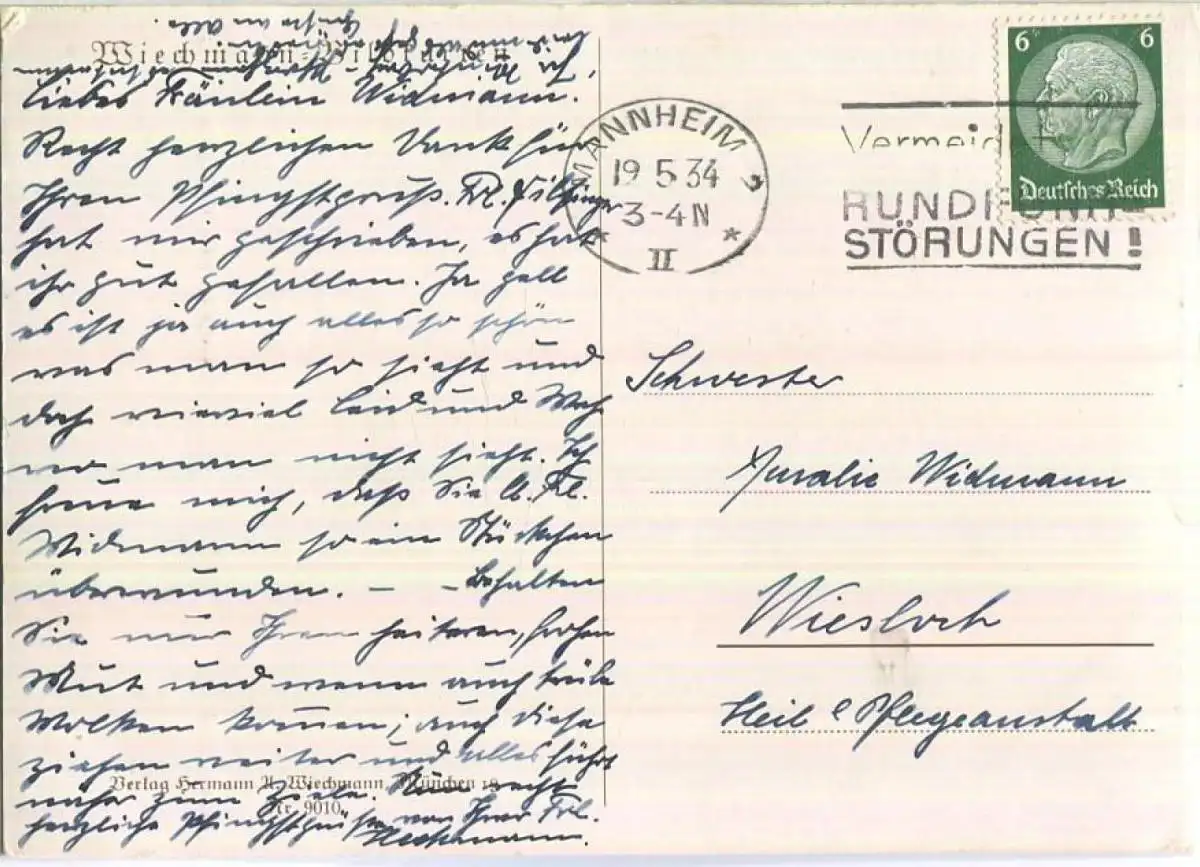 Wiechmann-Bildkarten
Grüße an Alle.
Liebes Fräulein Widmann.
Recht herzlichen Dank für
Ihren Pfingstgruß. Frl. Filsinger
hat mir geschrieben, es hat
ihr gut gefallen. Ja gell
es ist ja auch alles so schön
was man so sieht und
doch wieviel Leid und Weh
wo man nicht sieht. Ich
freue mich, daß Sie lb. Frl.
Widmann so ein Stückchen
überwunden. — — Behalten
Sie nur Ihren heiteren, frohen
Mut und wenn auch trübe
Wolken kommen; auch diese
ziehen weiter und alles führt
näher zum Ziele. Nun recht
herzliche Pfingstgrüße von Ihrer Frl.
Heckmann.
Verlag Hermann A. Wiechmann, München 18
Nr. 9010
MANNHEIM 2
19.5.34
3-4 N
II
Vermeidet
RUNDFUNK
STÖRUNGEN!
6 6
Deutsches Reich
Schwester
Amalie Widmann
Wiesloch
Heil & Pflegeanstalt